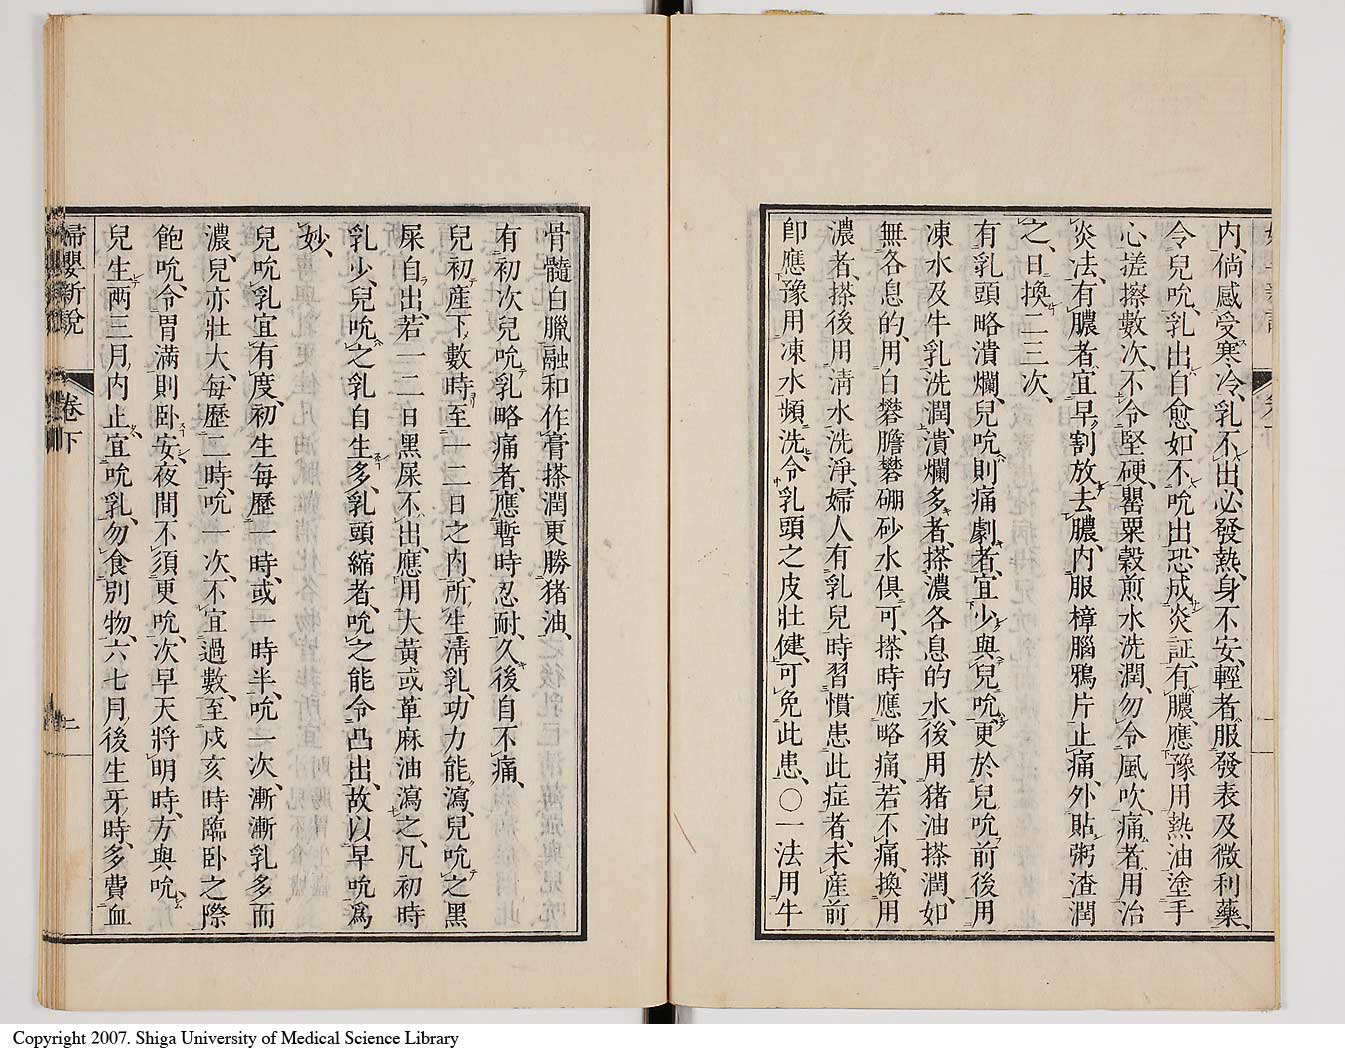 内、倘感受寒冷、乳不出、必發熱、身不安、輕者服發表及微利藥、
令兒吮、乳出自愈、如不吮出、恐成炎証、有膿、應豫用熱油塗手
心搓擦數次、不令堅硬、罌粟殼煎水洗潤、勿令風吹、痛者、用治
炎法、有膿者、宜早割放去膿、内服樟腦鴉片止痛、外貼粥渣潤
之、日換二三次、
有乳頭略潰爛、兒吮則痛劇者、宜少與兒吮、更於兒吮前後用
凍水及牛乳洗潤、潰爛多者、搽濃各息的水、後用猪油搽潤、如
無各息的、用白礬膽礬硼砂水俱可、搽時應略痛、若不痛、換用
濃者、搽後用清水洗淨、婦人有乳兒時習慣患此症者、未產前
卽應豫用凍水頻洗、令乳頭之皮壯健、可免此患、〇一法用牛
骨髓白臘融和作膏搽潤更勝猪油、
有初次兒吮乳略痛者、應暫時忍耐、久後自不痛、
兒初產下、數時至一二日之内、所生淸乳、功力能瀉、兒吮之黑
屎自出、若一二日黑屎不出、應用大黃或萆麻油瀉之、凡初時
乳少、兒吮之乳自生多、乳頭縮者、吮之能令凸出、故以早吮爲
妙、
兒吮乳宜有度、初生每歷一時、或一時半、吮一次、漸漸乳多而
濃、兒亦壯大、每歷二時、吮一次、不宜過數、至戌亥時臨卧之際
飽吮、令胃滿則卧安、夜間不須更吮、次早天將明時、方與吮、
兒生两三月内止宜吮乳、勿食別物、六七月後生牙時、多費血
婦嬰新說 卷下 二
Copyright 2007. Shiga University of Medical Science Library